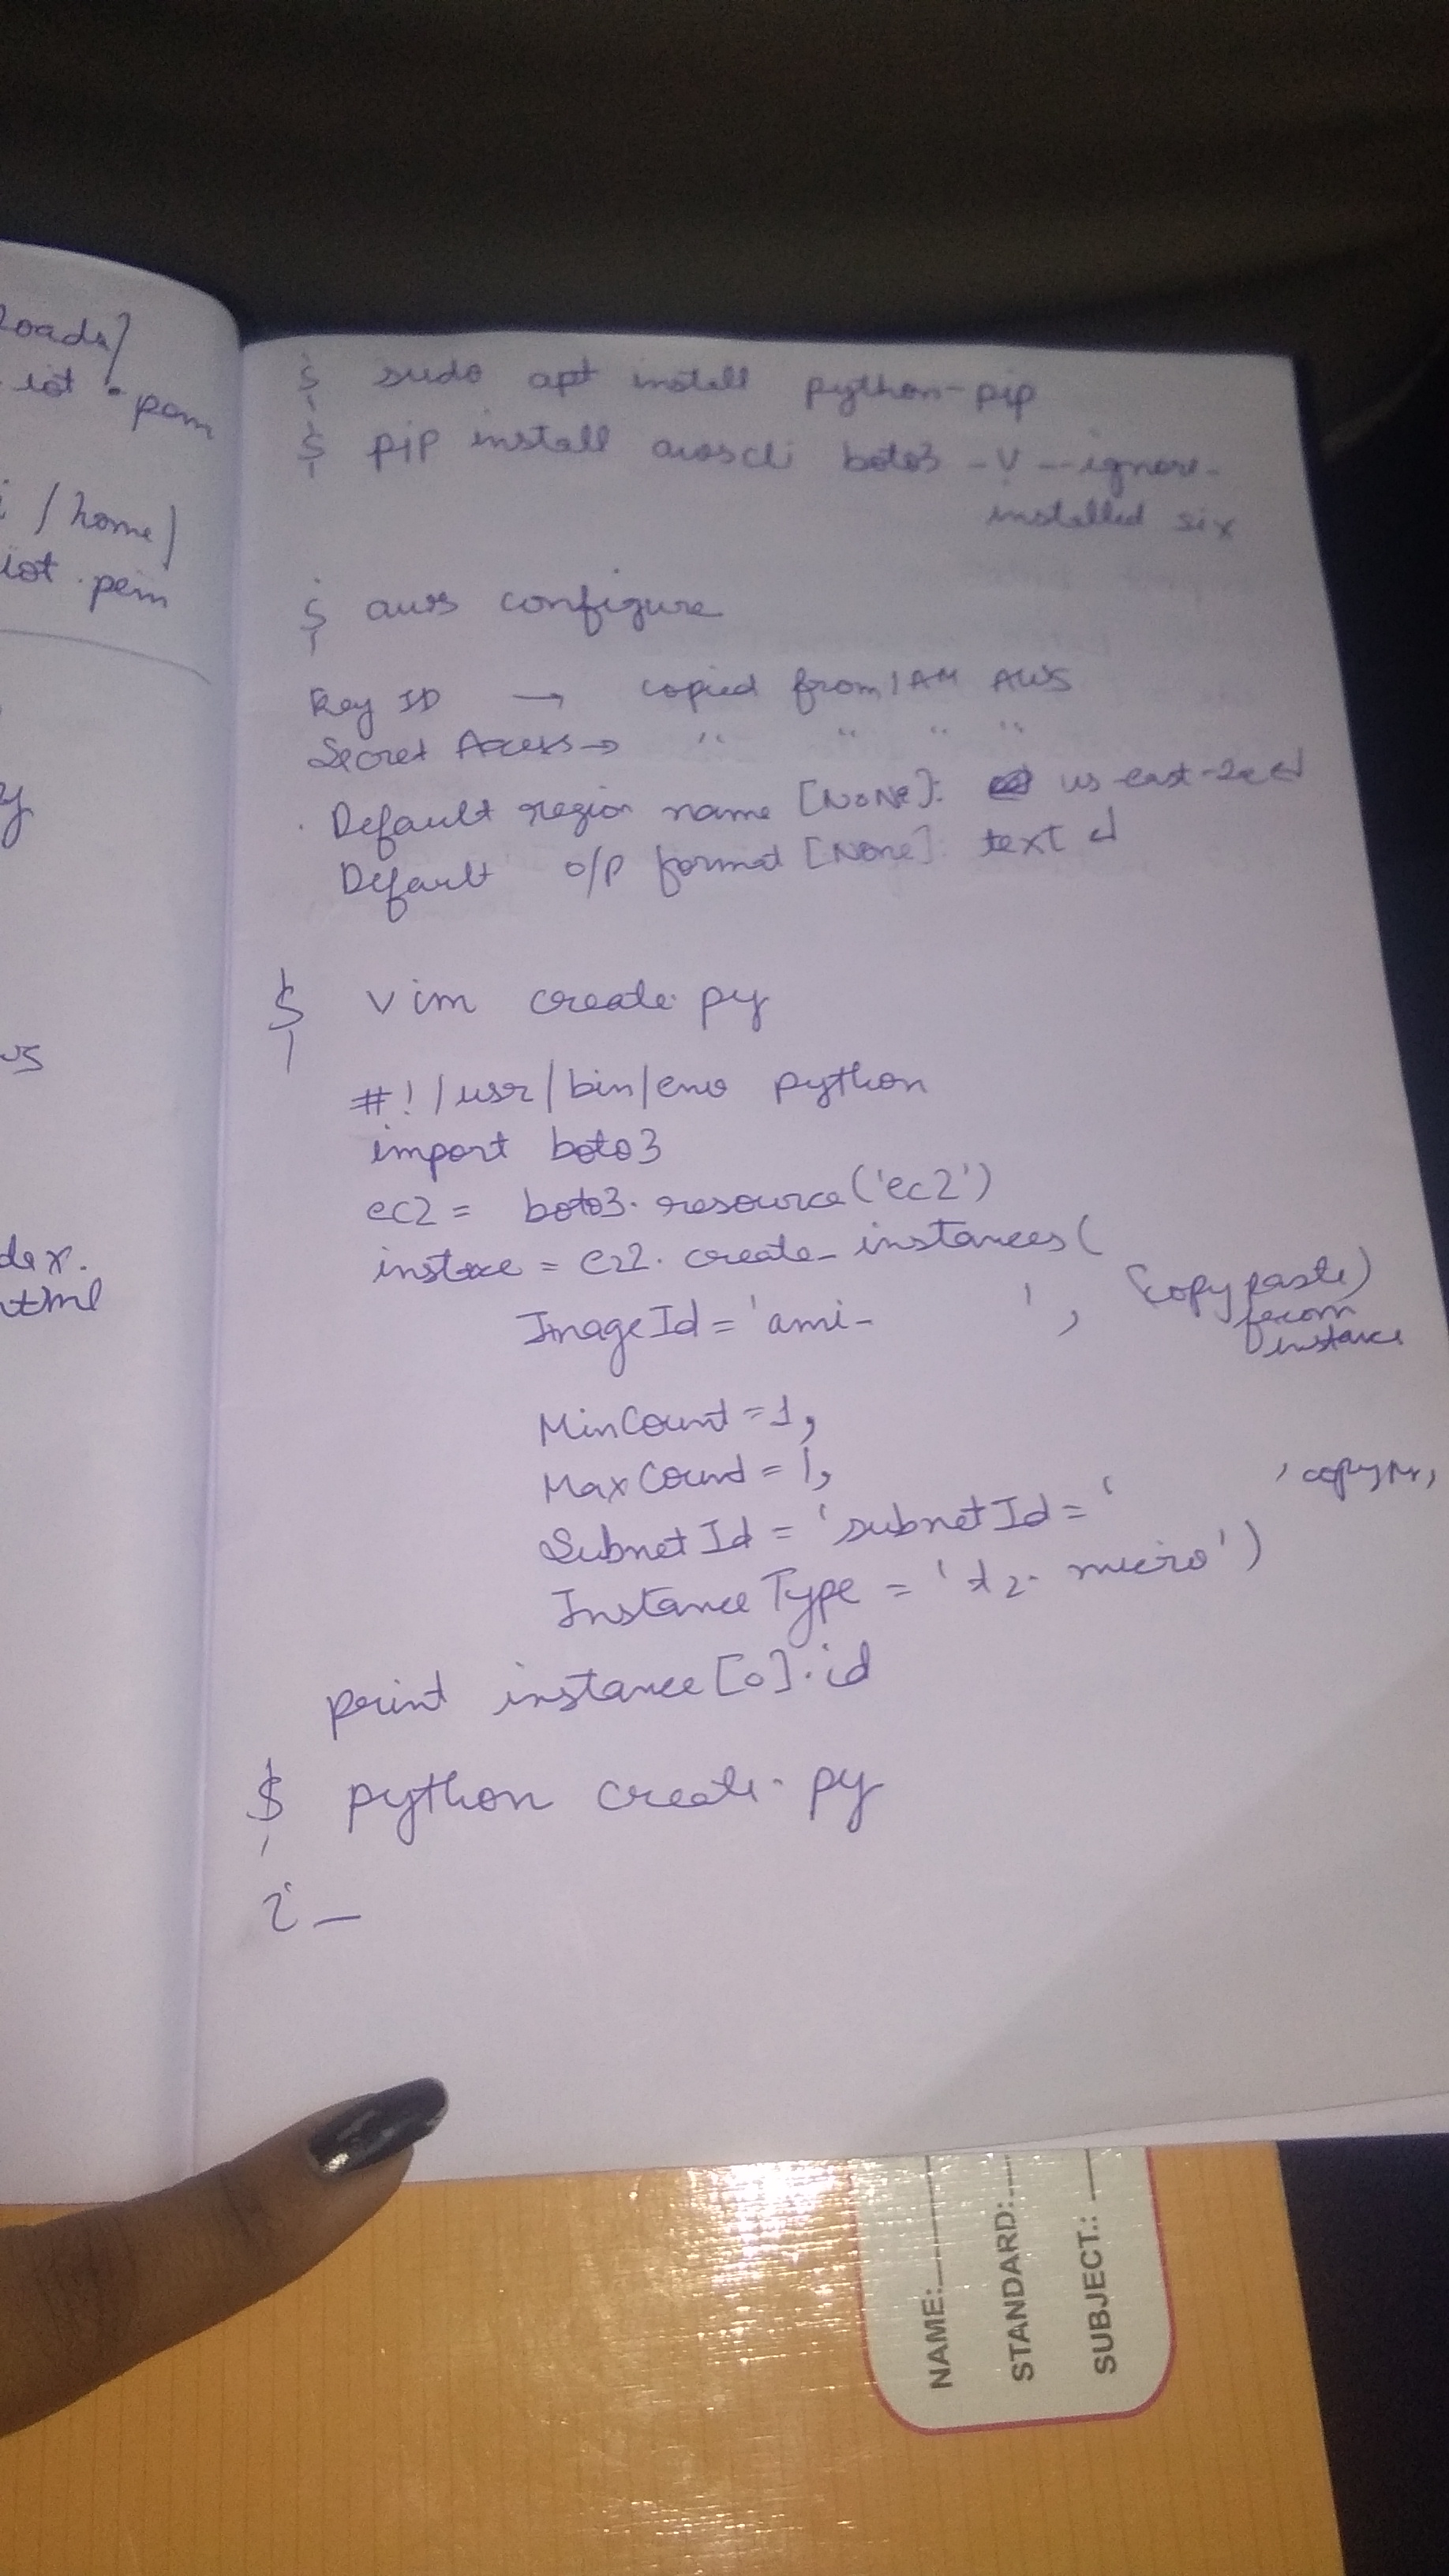 loads/
iot.pem
i /home/
iot.pem
y
us
dex.
html
$ sudo apt install python-pip
$ pip install awscli boto3 -U --ignore-
installed six
$ aws configure
Key ID → copied from IAM AWS
Secret Access → " " " "
Default region name [NoNe]: us-east-2a ↵
Default o/p format [None]: text ↵
$ vim create.py
#!/usr/bin/env python
import boto3
ec2 = boto3.resource('ec2')
instace = ec2.create_instances(
ImageId = 'ami- ', (copy paste)
from
instance
MinCount = 1,
MaxCount = 1,
SubnetId = 'subnetId = ' ',
InstanceType = 't2.micro')
print instance[0].id
$ python create.py
i -
NAME:
STANDARD:
SUBJECT.: